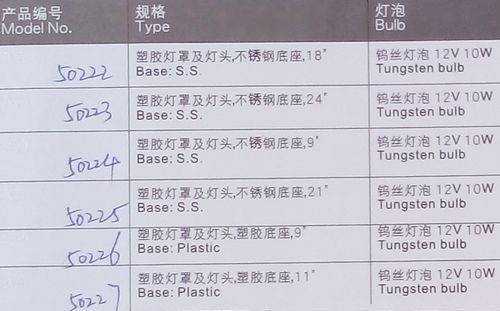 产品编号 规格 灯泡
Model No. Type Bulb
50222 塑胶灯罩及灯头,不锈钢底座,18" 钨丝灯泡 12V 10W
Base: S.S. Tungsten bulb
50223 塑胶灯罩及灯头,不锈钢底座,24" 钨丝灯泡 12V 10W
Base: S.S. Tungsten bulb
50224 塑胶灯罩及灯头,不锈钢底座,9" 钨丝灯泡 12V 10W
Base: S.S. Tungsten bulb
50225 塑胶灯罩及灯头,不锈钢底座,21" 钨丝灯泡 12V 10W
Base: S.S. Tungsten bulb
50226 塑胶灯罩及灯头,塑胶底座,9" 钨丝灯泡 12V 10W
Base: Plastic Tungsten bulb
50227 塑胶灯罩及灯头,塑胶底座,11" 钨丝灯泡 12V 10W
Base: Plastic Tungsten bulb